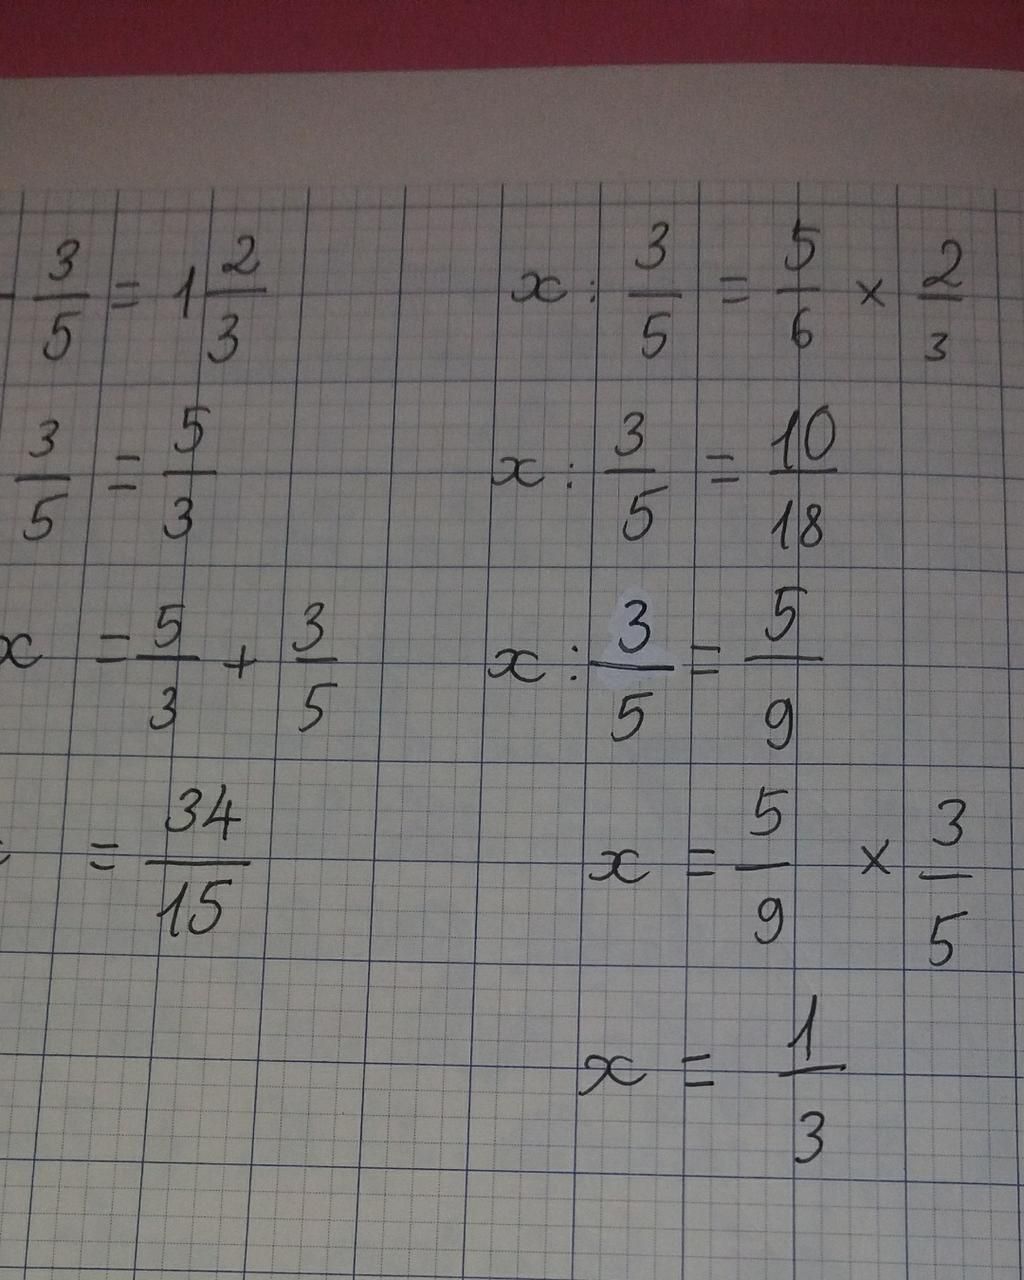 - 3/5 = 1 2/3
3/5 = 5/3
x = 5/3 + 3/5
= 34/15
x : 3/5 = 5/6 × 2/3
x : 3/5 = 10/18
x : 3/5 = 5/9
x = 5/9 × 3/5
x = 1/3